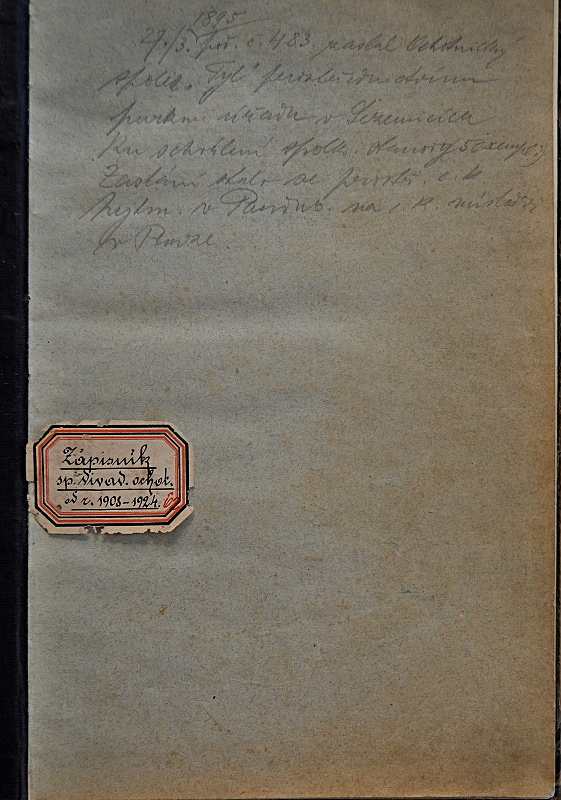 1895
27./3. poř. č. 483. zaslal Ochotnický
spolek „Tyl" prostřednictvím
purkm. úřadu v Sezemicích
Ku schválení spolk. stanovy 5 exempl.
Zaslání stalo se prostř. c. k.
hejtm. v Pardub. na c. k. místodrž.
v Praze.
Zápisník
sp. divad. ochot.
od r. 1908-1924. 6